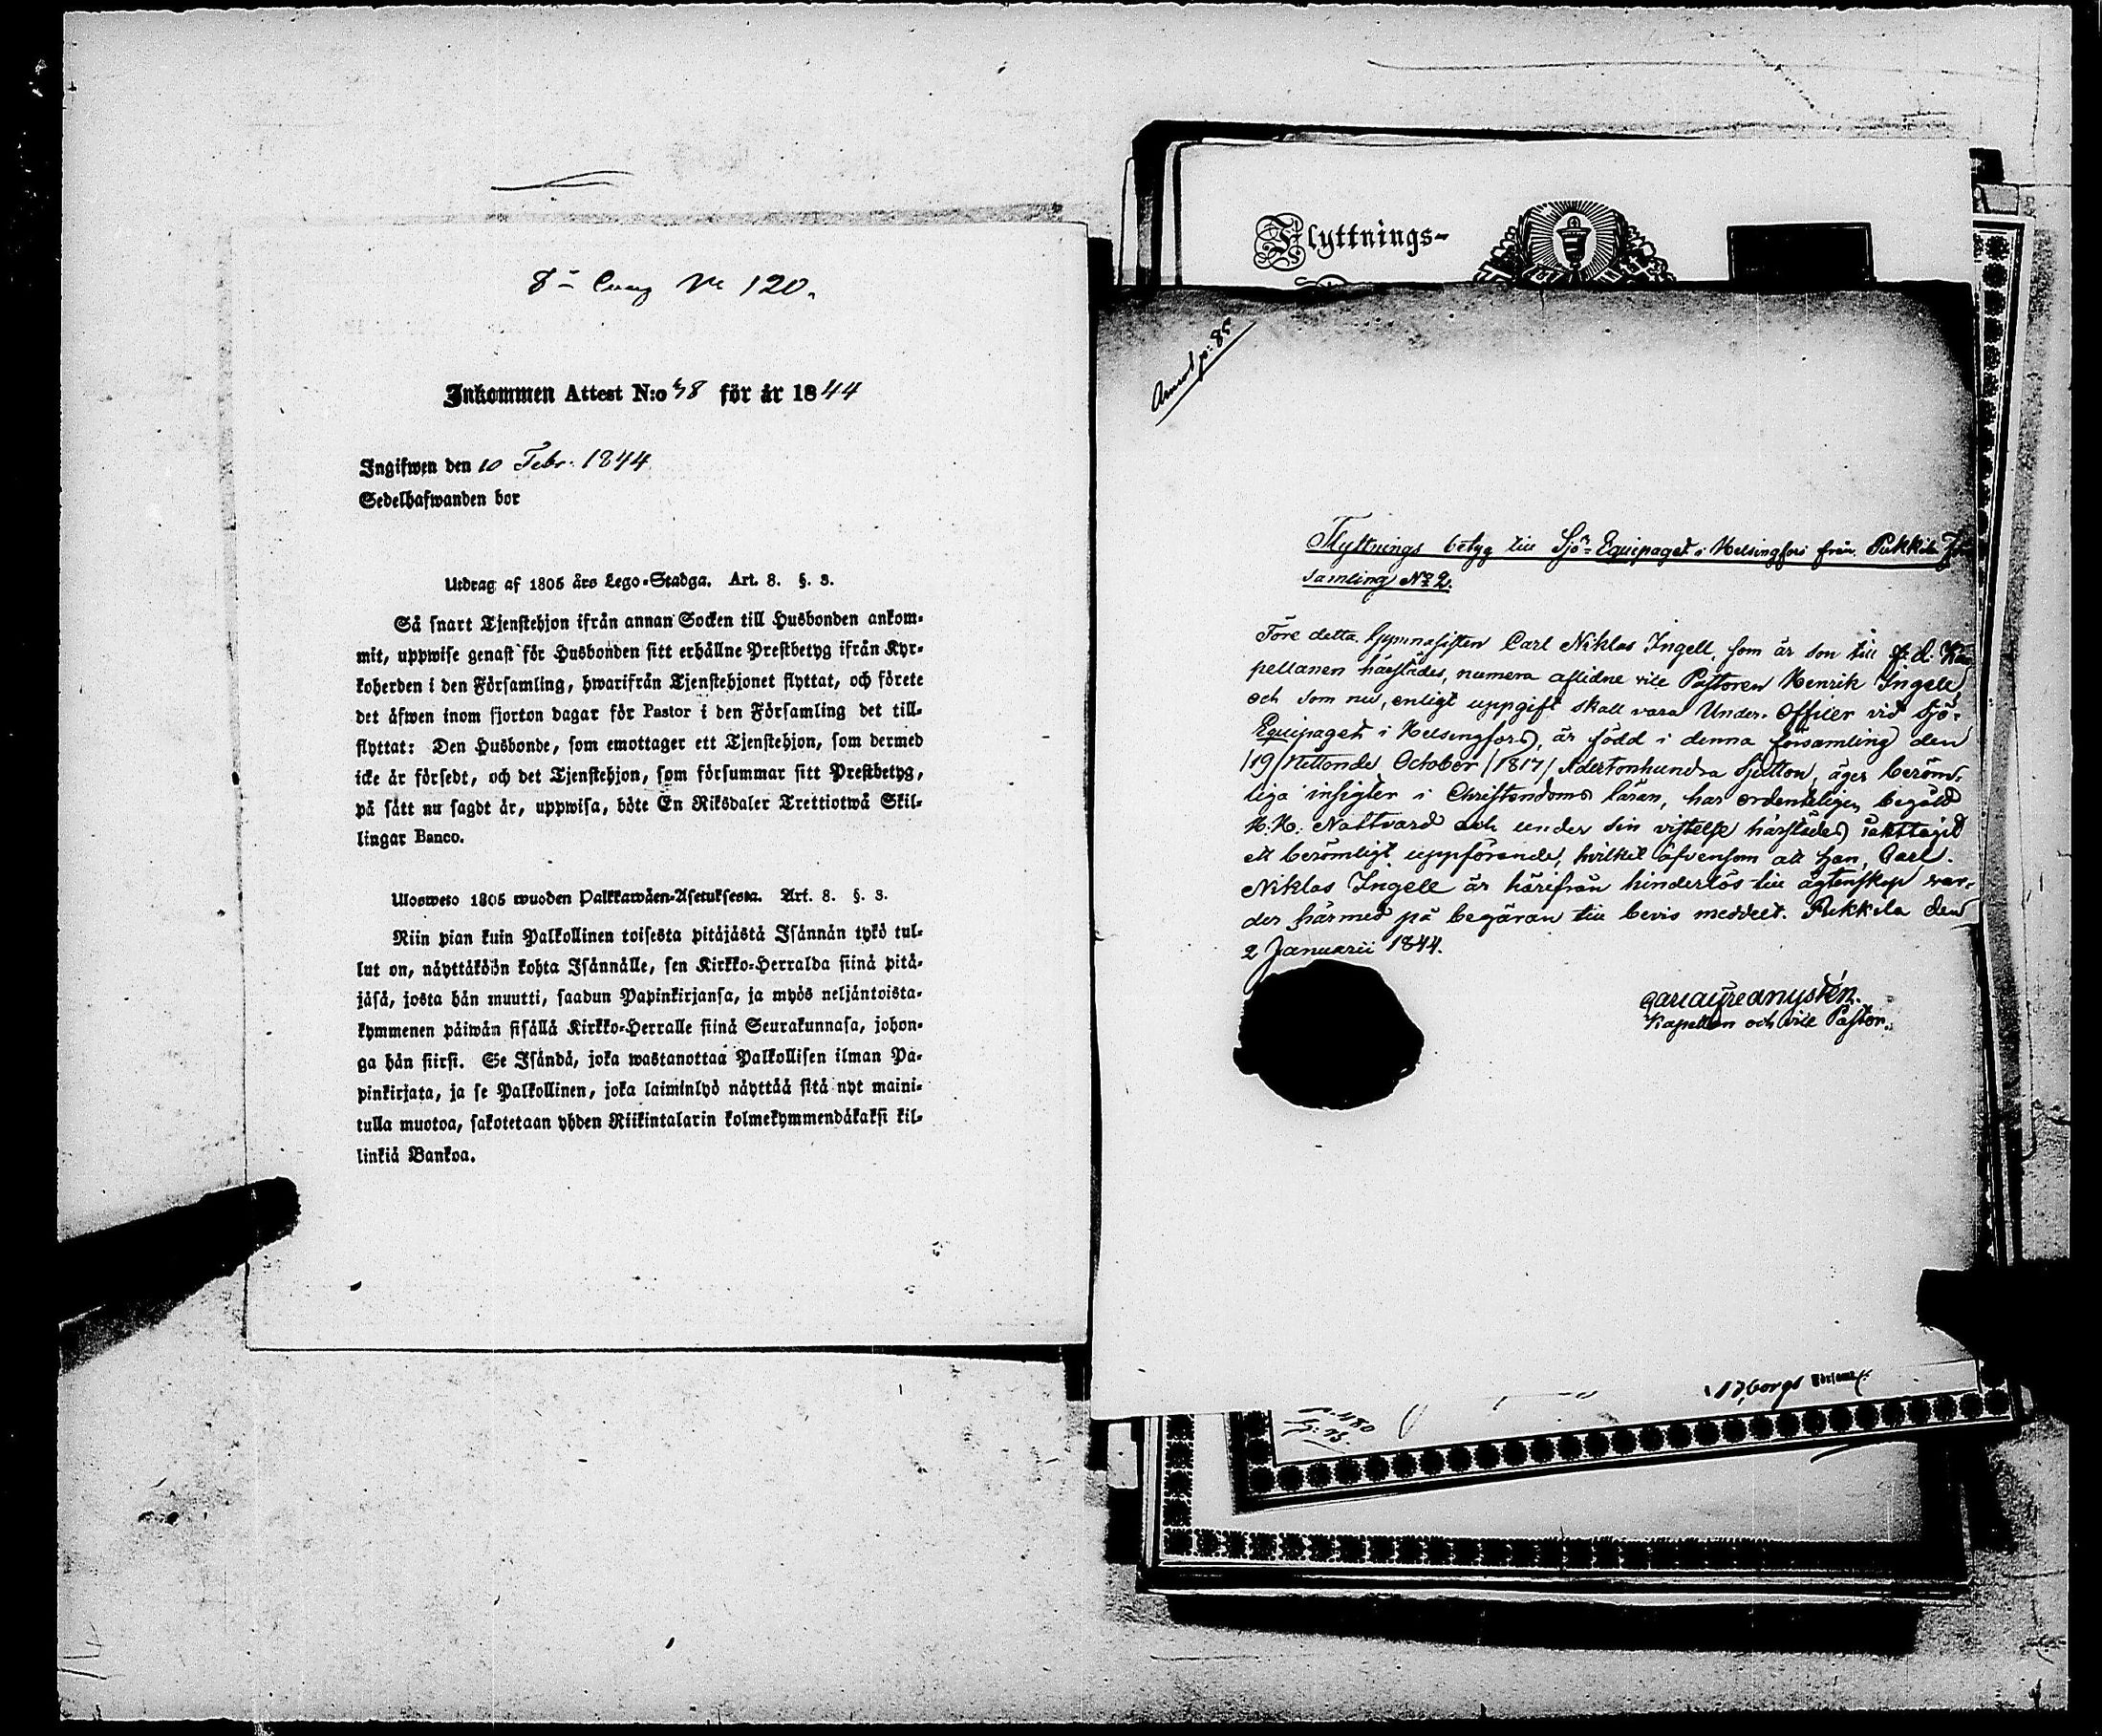 N:o 120.
Inkommen Attest N:o 38 för år 1844
Ingifwen den 10 Febr. 1844
Sedelhafwanden bor
Utdrag af 1805 års Lego-Stadga. Art. 8. §. 3.
Så snart Tjenstehjon ifrån annan Socken till Husbonden ankom-
mit, uppwise genast för Husbonden sitt erhållne Prestbetyg ifrån Kyr-
koherden i den Församling, hwarifrån Tjenstehjonet flyttat, och förete
det äfwen inom fjorton dagar för Pastor i den Församling det till-
flyttat: Den Husbonde, som emottager ett Tjenstehjon, som dermed
icke är försedt, och det Tjenstehjon, som försummar sitt Prestbetyg,
på sätt nu sagdt är, uppwisa, böte En Riksdaler Trettiotwå Skil-
lingar Banco.
Ulosweto 1805 wuoden Palkkawäen-Asetuksesta. Art. 8. §. 3.
Niin pian kuin Palkollinen toisesta pitäjästä Isännän tykö tul-
lut on, näyttäköön kohta Isännälle, sen Kirkko-Herralda siinä pitä-
jäsä, josta hän muutti, saadun Papinkirjansa, ja myös neljäntoista-
kymmenen päiwän sisällä Kirkko-Herralle siinä Seurakunnasa, johon-
ga hän siirsi. Se Isändä, joka wastanottaa Palkollisen ilman Pa-
pinkirjata, ja se Palkollinen, joka laiminlyö näyttää sitä nyt maini-
tulla muotoa, sakotetaan yhden Riikintalarin kolmekymmendäkaksi kil-
linkiä Bankoa.
Flyttnings-
p: 85
Flyttnings betyg till Sjö-Equipaget i Helsingfors från Pukkila För
samling No 2.
Före detta Gymnasisten Carl Niklas Ingell, som är son till f. d. Ka-
pellanen härstädes, numera aflidne vice Pastoren Henrik Ingell,
och som nu, enligt uppgift skall vara Under-Officer vid Sjö-
Equipaget i Helsingfors, är född i denna församling den
/19/ Nittonde October /1817/ Adertonhundra Sjutton, äger beröm-
liga insigter i Christendoms läran, har ordenteligen begått
H. H. Nattvard och under sin vistelse härstädes iakttagit
ett berömligt uppförande, hvilket äfvensom att han, Carl
Niklas Ingell är härifrån hinderlös till ägtenskap var-
der härmed på begäran till bevis meddelt. Pukkila den
2 Januarii 1844.
Kapellan och vice Pastor.
p. 480
p: 75.